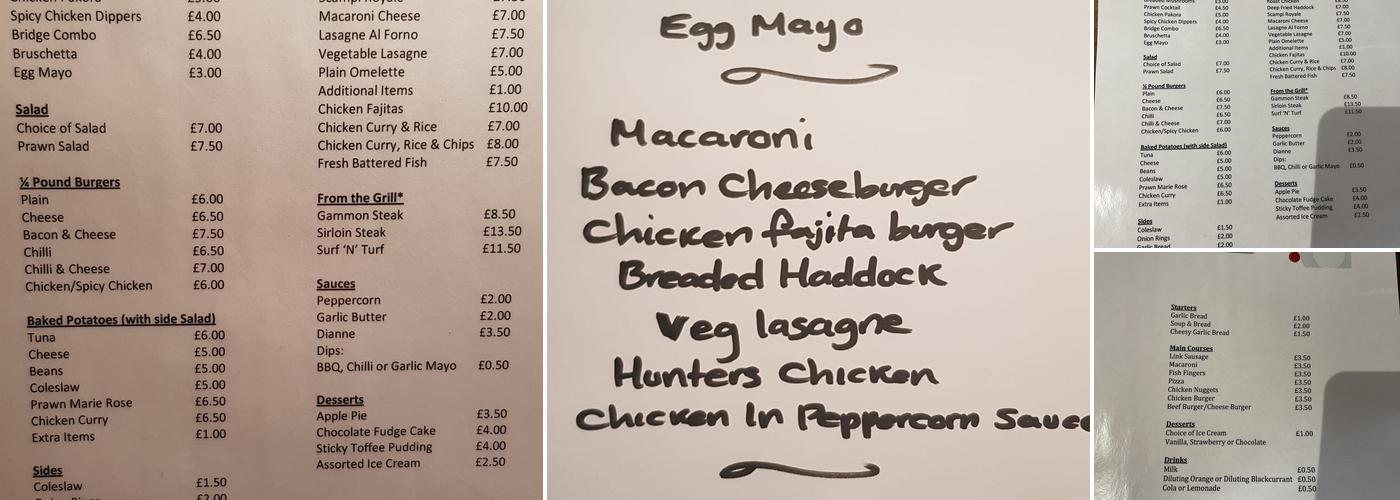 Spicy Chicken Dippers £4.00
Bridge Combo £6.50
Bruschetta £4.00
Egg Mayo £3.00
Salad
Choice of Salad £7.00
Prawn Salad £7.50
¼ Pound Burgers
Plain £6.00
Cheese £6.50
Bacon & Cheese £7.50
Chilli £6.50
Chilli & Cheese £7.00
Chicken/Spicy Chicken £6.00
Baked Potatoes (with side Salad)
Tuna £6.00
Cheese £5.00
Beans £5.00
Coleslaw £5.00
Prawn Marie Rose £6.50
Chicken Curry £6.50
Extra Items £1.00
Sides
Coleslaw £1.50
Macaroni Cheese £7.00
Lasagne Al Forno £7.50
Vegetable Lasagne £7.00
Plain Omelette £5.00
Additional Items £1.00
Chicken Fajitas £10.00
Chicken Curry & Rice £7.00
Chicken Curry, Rice & Chips £8.00
Fresh Battered Fish £7.50
From the Grill*
Gammon Steak £8.50
Sirloin Steak £13.50
Surf 'N' Turf £11.50
Sauces
Peppercorn £2.00
Garlic Butter £2.00
Dianne £3.50
Dips:
BBQ, Chilli or Garlic Mayo £0.50
Desserts
Apple Pie £3.50
Chocolate Fudge Cake £4.00
Sticky Toffee Pudding £4.00
Assorted Ice Cream £2.50
Egg Mayo
Macaroni
Bacon Cheeseburger
Chicken fajita burger
Breaded Haddock
Veg lasagne
Hunters Chicken
Chicken In Peppercorn Sauce
Prawn Cocktail £4.50
Chicken Pakora £5.00
Spicy Chicken Dippers £4.00
Bridge Combo £6.50
Bruschetta £4.00
Egg Mayo £3.00
Salad
Choice of Salad £7.00
Prawn Salad £7.50
¼ Pound Burgers
Plain £6.00
Cheese £6.50
Bacon & Cheese £7.50
Chilli £6.50
Chilli & Cheese £7.00
Chicken/Spicy Chicken £6.00
Baked Potatoes (with side Salad)
Tuna £6.00
Cheese £5.00
Beans £5.00
Coleslaw £5.00
Prawn Marie Rose £6.50
Chicken Curry £6.50
Extra Items £1.00
Sides
Coleslaw £1.50
Onion Rings £2.00
Garlic Bread £2.00
Deep Fried Haddock £7.00
Scampi Royale £7.50
Macaroni Cheese £7.00
Lasagne Al Forno £7.50
Vegetable Lasagne £7.00
Plain Omelette £5.00
Additional Items £1.00
Chicken Fajitas £10.00
Chicken Curry & Rice £7.00
Chicken Curry, Rice & Chips £8.00
Fresh Battered Fish £7.50
From the Grill*
Gammon Steak £8.50
Sirloin Steak £13.50
Surf 'N' Turf £11.50
Sauces
Peppercorn £2.00
Garlic Butter £2.00
Dianne £3.50
Dips:
BBQ, Chilli or Garlic Mayo £0.50
Desserts
Apple Pie £3.50
Chocolate Fudge Cake £4.00
Sticky Toffee Pudding £4.00
Assorted Ice Cream £2.50
Starters
Garlic Bread £1.00
Soup & Bread £2.00
Cheesy Garlic Bread £1.50
Main Courses
Link Sausage £3.50
Macaroni £3.50
Fish Fingers £3.50
Pizza £3.50
Chicken Nuggets £3.50
Chicken Burger £3.50
Beef Burger/Cheese Burger £3.50
Desserts
Choice of Ice Cream £1.00
Vanilla, Strawberry or Chocolate
Drinks
Milk £0.50
Diluting Orange or Diluting Blackcurrant £0.50
Cola or Lemonade £0.50